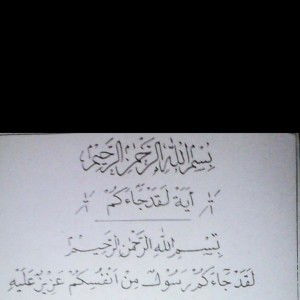 بِسْمِ اللهِ الرَّحْمٰنِ الرَّحِيْمِ
١ آيَةْ لَقَدْ جَآءَكُمْ ١
بِسْمِ اللهِ الرَّحْمٰنِ الرَّحِيْمِ
لَقَدْ جَآءَكُمْ رَسُوْلٌ مِنْ اَنْفُسِكُمْ عَزِيْزٌ عَلَيْهِ